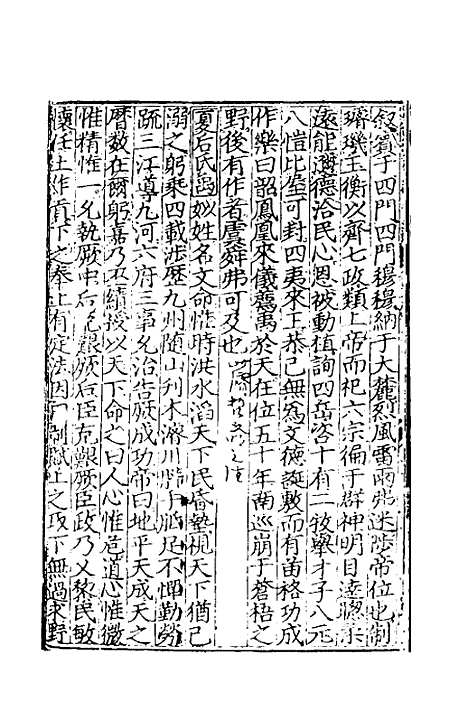 叙賔于四門四門穆穆納于大麓烈風雷雨弗迷陟帝位也制
璿璣玉衡以齊七政類上帝而祀六宗徧于群神明目達聰柔
遠能邇德洽民心恩被動植詢四岳咨十有二牧舉才子八元
八愷比屋可封四夷來王恭己無爲文德誕敷而有苗格功成
作樂曰韶鳳凰來儀薦禹於天在位五十年南巡崩于蒼梧之
野後有作者虞舜弗可及也
夏后氏禹姒姓名文命惟時洪水滔天下民昏墊視天下猶己
溺之躬乘四載渉歴九州随山刋木濬川胼手胝足不憚勤勞
䟽三江導九河六府三事允治告厥成功帝曰地平天成天之
曆数在爾躬嘉乃丕績授以天下命之曰人心惟危道心惟微
惟精惟一允執厥中后克艱厥后臣克艱厥臣政乃乂黎民敏
德任土作貢下之奉上有定法因田制賦上之取下無過求野